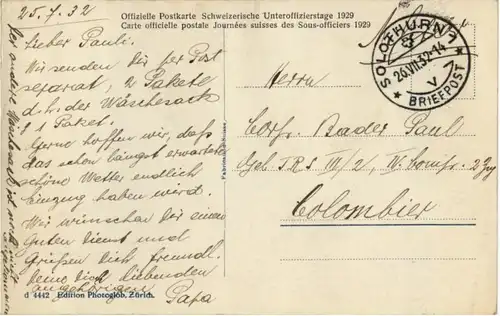 25.7.32
Offizielle Postkarte Schweizerische Unteroffizierstage 1929
Carte officielle postale Journées suisses des Sous-officiers 1929
Lieber Pauli.
Wir senden Dir per Post
separat, 2 Pakete
d.h. der Wäschesack
& 1 Paket.
Gerne hoffen wir, dass
das schon längst erwartete
schöne Wetter endlich
Einzug haben wird.
Wir wünschen Dir einen
guten Dienst und
Grüßen Dich freundl.
Deine Dich liebenden
Angehörigen
Papa
d 4442 Edition Photoglob, Zürich.
SOLOTHURN 1
26.VII.32-14
V
BRIEFPOST
Herrn
Corp. Bader Paul
Geb. I.R.S. III/2, IV. Comp. 2 Zug
Colombier